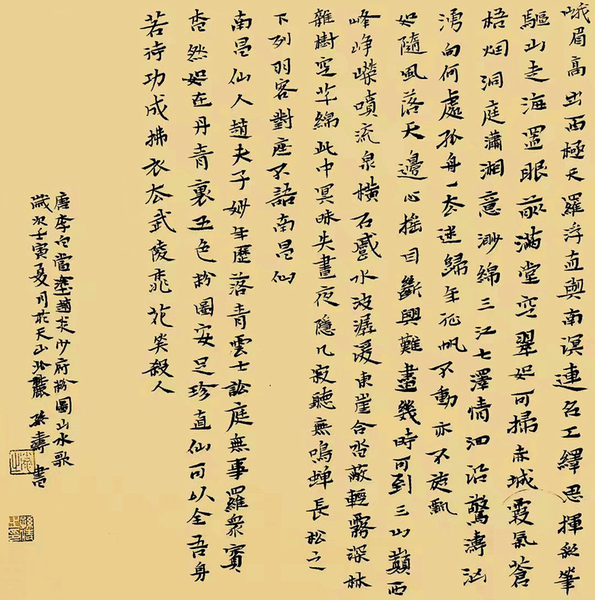 峨眉高出西極天羅浮直與南溟連名工繹思揮彩筆
驅山走海置眼前滿堂空翠如可掃赤城霞氣蒼
梧烟洞庭瀟湘意渺綿三江七澤情洄沿驚濤洶
湧向何處孤舟一去迷歸年征帆不動亦不旋飄
如隨風落天邊心搖目斷興難盡幾時可到三山巔西
峰崢嶸噴流泉橫石蹙水波潺湲東崖合沓蔽輕霧深林
雜樹空芊綿此中冥昧失晝夜隱几寂聽無鳴蟬長松之
下列羽客對座不語南昌仙
南昌仙人趙夫子妙年歷落青雲士訟庭無事羅衆賓
杳然如在丹青裏五色粉圖安足珍真仙可以全吾身
若待功成拂衣去武陵桃花笑殺人
唐李白當塗趙炎少府粉圖山水歌
歲次壬寅夏月於天山北麓 壽書